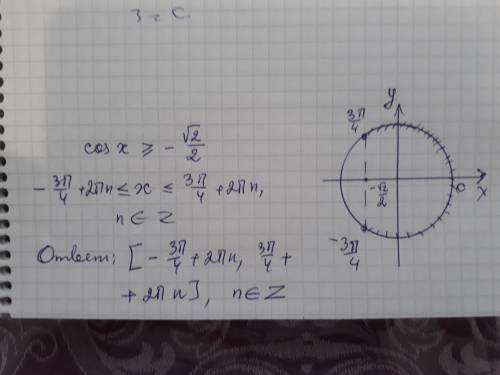 cos x ≥ - √2/2
- 3π/4 + 2πn ≤ x ≤ 3π/4 + 2πn,
n ∈ Z
Ответ: [ - 3π/4 + 2πn, 3π/4 +
+ 2πn ], n ∈ Z
y
3π/4
- √2/2
0
x
- 3π/4